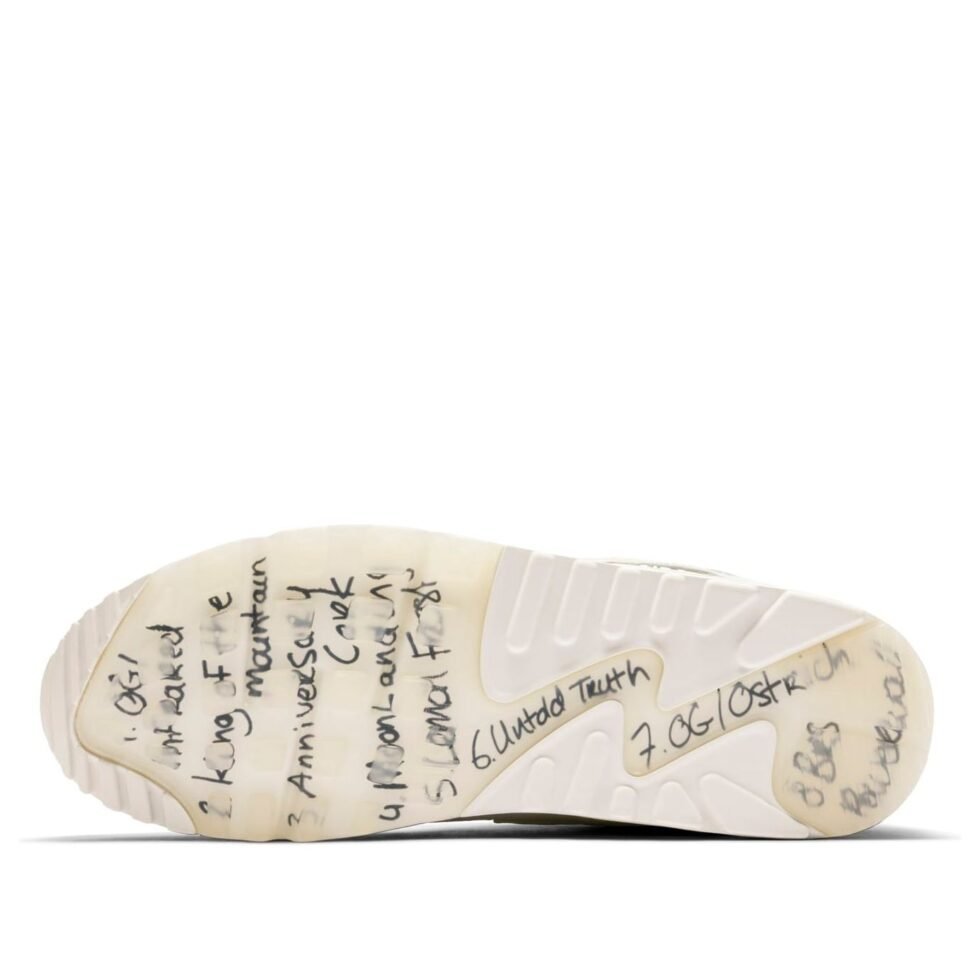 1. OG/
2 King of the
mountain
3 Anniversary
Cork
4. Moon Landing
5. Lemon Frost
6. Untold Truth
7. OG/Ostrich
8